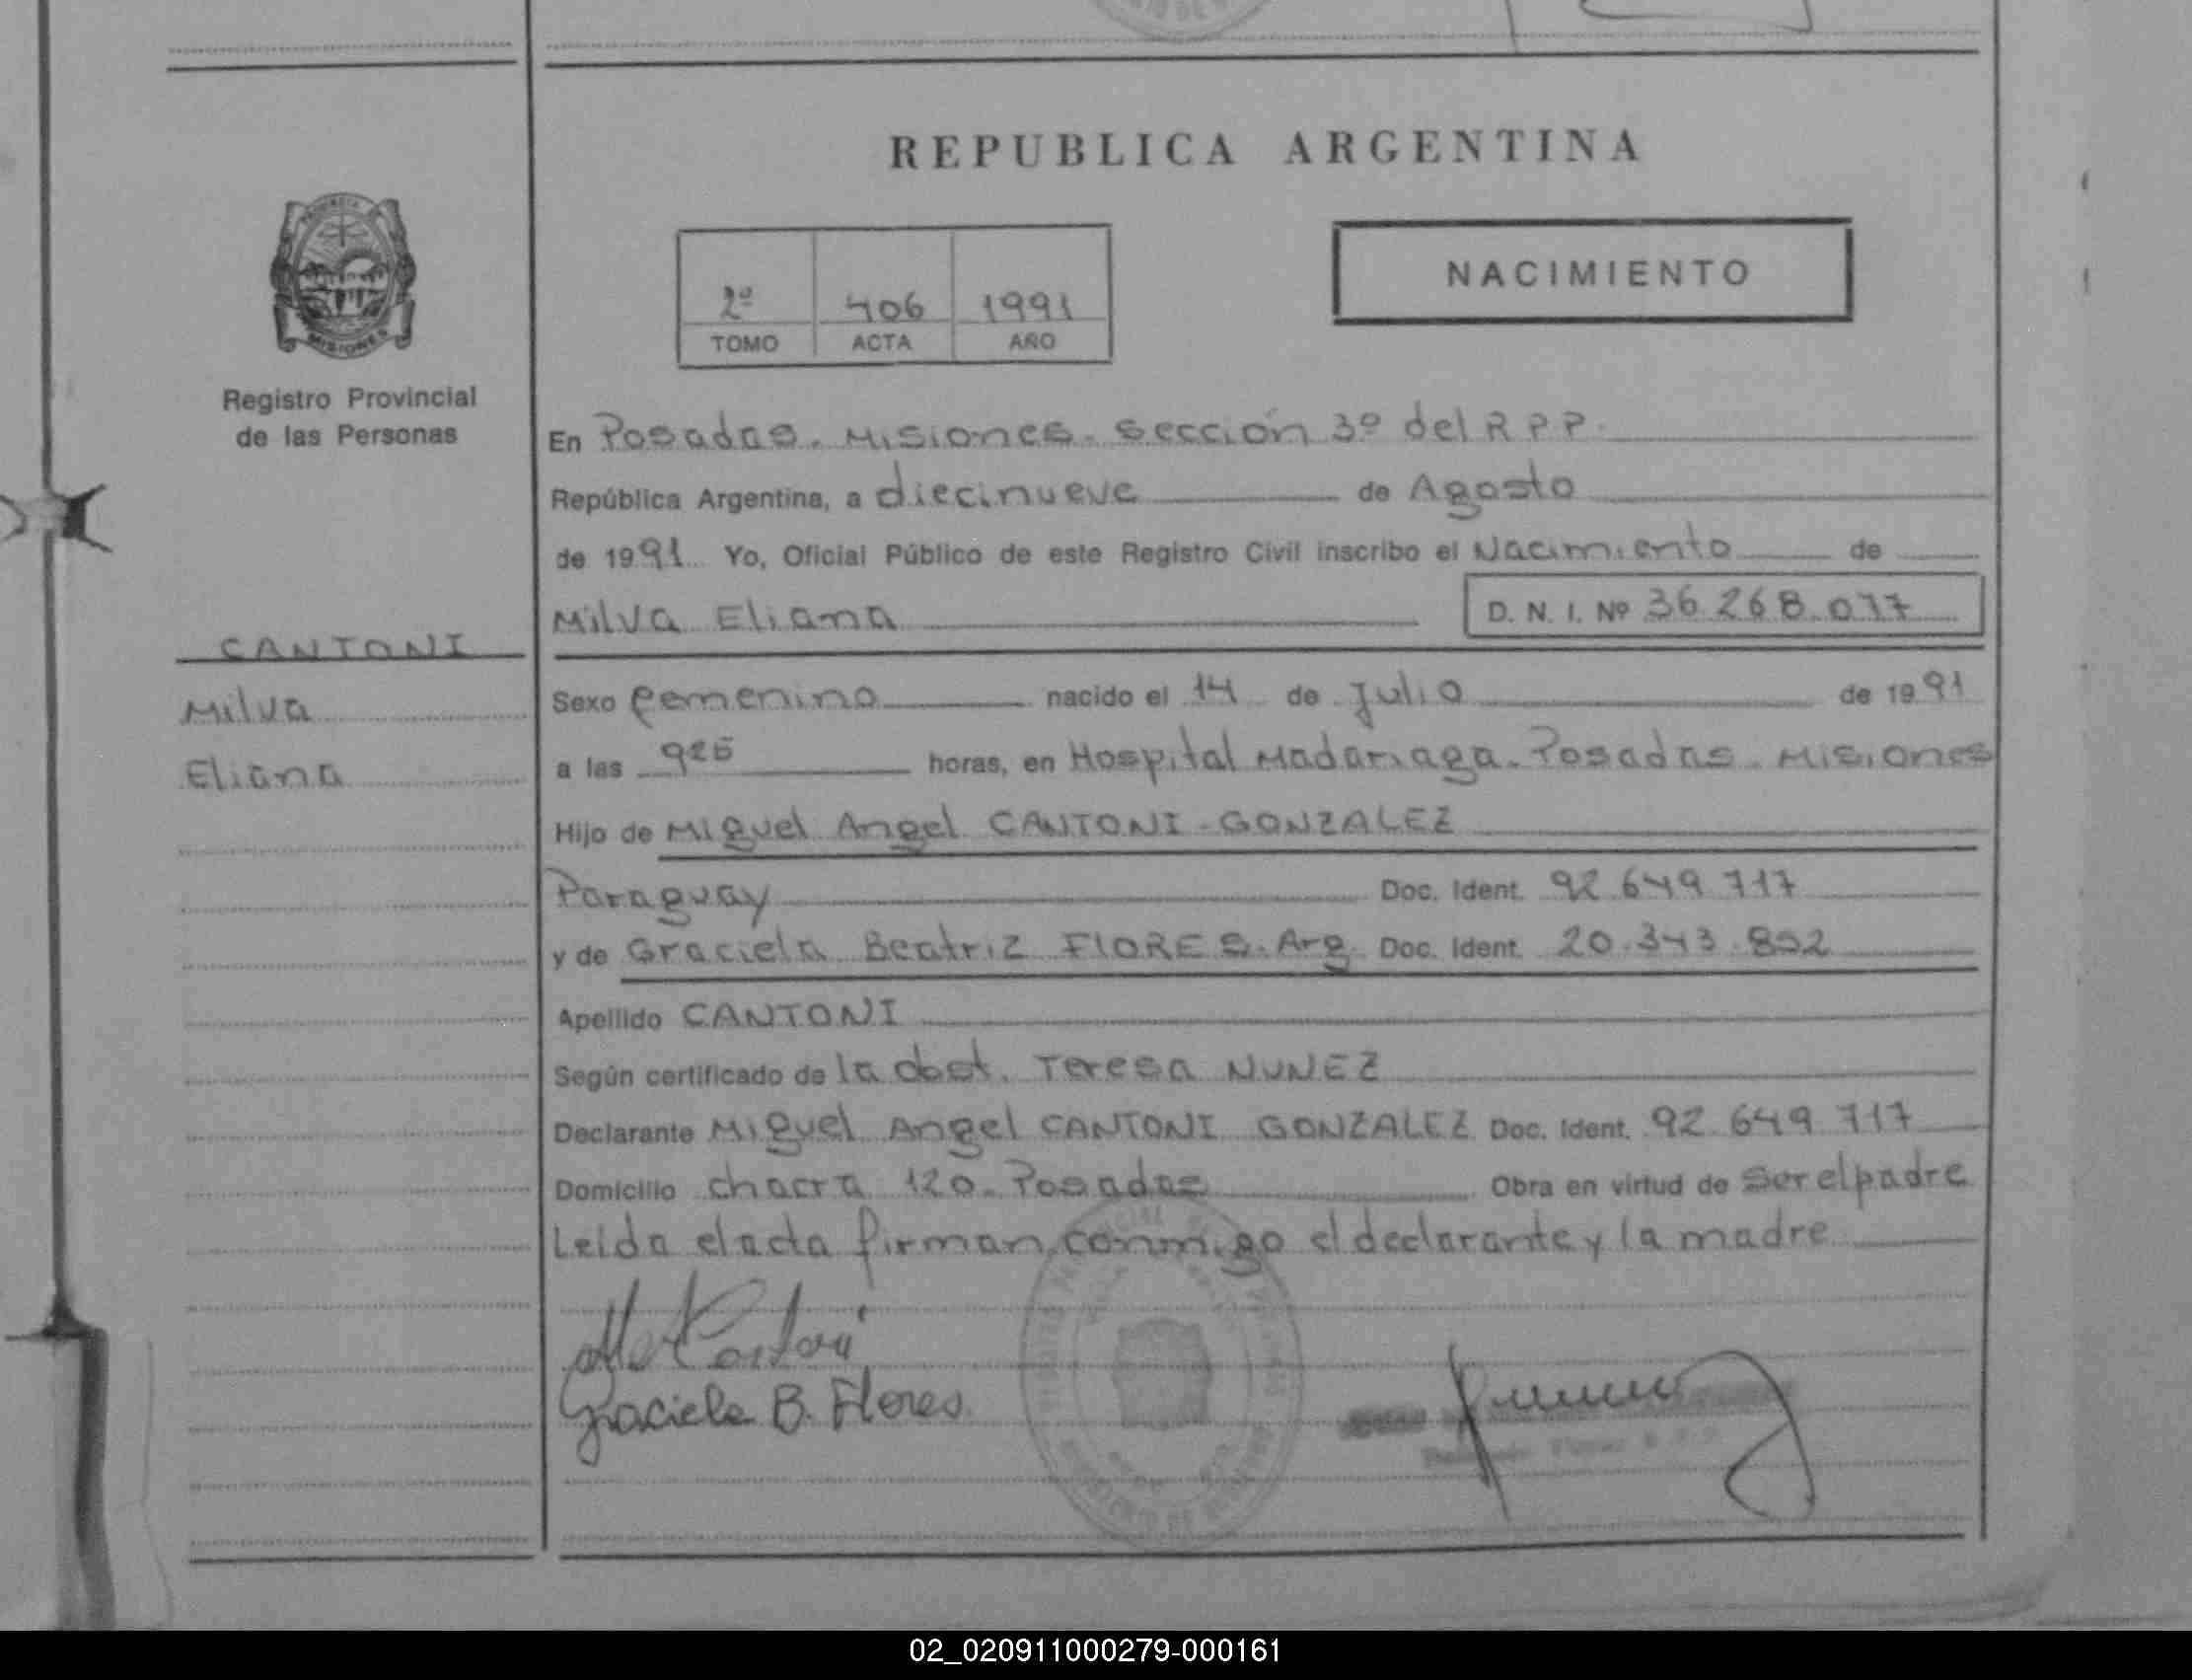 REPUBLICA ARGENTINA
NACIMIENTO
2º 406 1991
TOMO ACTA AÑO
MISIONES
Registro Provincial
de las Personas
CANTONI
Milva
Eliana
En Posadas. Misiones. Sección 3º del R P P.
República Argentina, a diecinueve de Agosto
de 1991 Yo, Oficial Público de este Registro Civil inscribo el Nacimiento de
Milva Eliana D. N. I. Nº 36.268.077
Sexo femenino nacido el 14 de Julio de 1991
a las 925 horas, en Hospital Madariaga. Posadas. Misiones
Hijo de Miguel Angel CANTONI - GONZALEZ
Paraguay Doc. Ident. 92.649.717
y de Graciela Beatriz FLORES. Arg. Doc. Ident. 20.343.852
Apellido CANTONI
Según certificado de la obst. Teresa NUNEZ
Declarante Miguel Angel CANTONI GONZALEZ Doc. Ident. 92.649.717
Domicilio chacra 120. Posadas Obra en virtud de ser el padre
Leida el acta firman conmigo el declarante y la madre
Graciela B. Flores
02_020911000279-000161